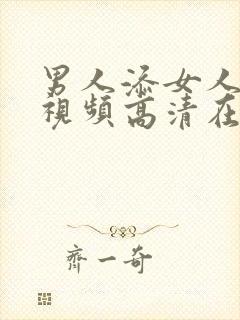 男人添女人
視頻高清在
齊一奇